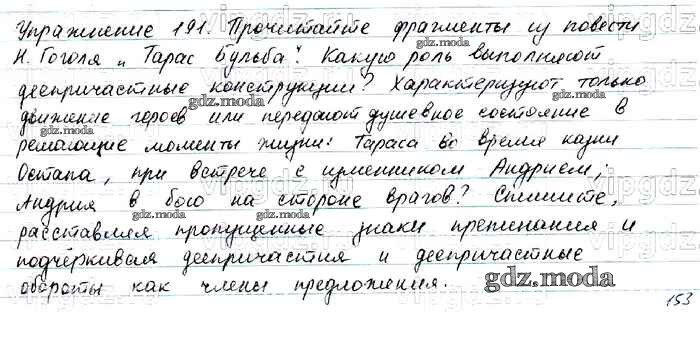 Упражнение 191. Прочитайте фрагменты из повести
Н. Гоголя „Тарас Бульба". Какую роль выполняют
деепричастные конструкции? Характеризуют только
движение героев или передают душевное состояние в
решающие моменты жизни: Тараса во время казни
Остапа, при встрече с изменником Андрием;
Андрия в бою на стороне врагов? Спишите,
расставляя пропущенные знаки препинания и
подчёркивая деепричастия и деепричастные
обороты как члены предложения.
gdz.moda
153